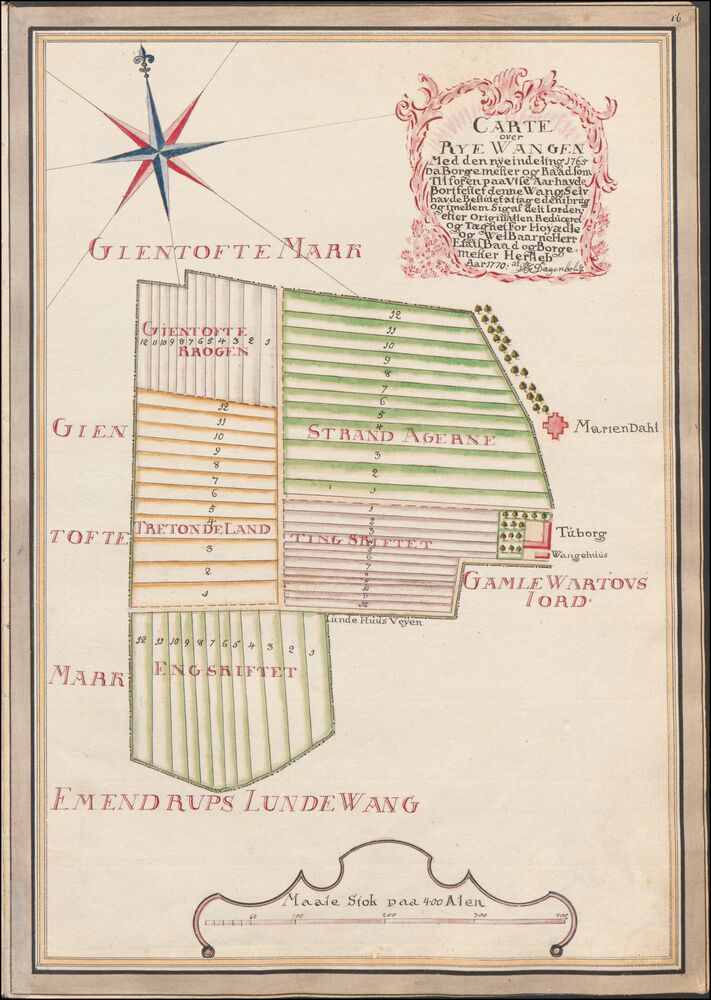 16
CARTE
over
RYE WANGEN
Med den nye indeling 1765
Da Borgemester og Raad som
Til foren paa Visse Aar havde
Bortfestet denne Wang Selv
havde Beslutet at tage den i brug
og imellem Sig af delt Iorden,
efter Originallen Reducerd
og Tægnet For Høyædle
og Wel Baarne Herr
Etats Baad og Borge-
mester Hersleb
Aar 1770.
GIENTOFTE MARK
GJENTOFTE
KROGEN
12 11 10 9 8 7 6 5 4 3 2 1
12
11
10
9
8
7
6
5
4
STRAND AGERNE
3
2
1
MarienDahl
GIEN
TOFTE
MARK
12
11
10
9
8
7
6
5
4
TRETONDELAND
3
2
1
1
2
3
TING SKIFTET
6
7
8
9
10
11
12
Tüborg
Wangehüus
GAMLE WARTOVS
IORD.
Lunde Hüüs Veyen
12 11 10 9 8 7 6 5 4 3 2 1
ENGSKIFTET
EMENDRUPS LUNDE WANG
Maale Stok paa 400 Alen
50 100 200 300 400